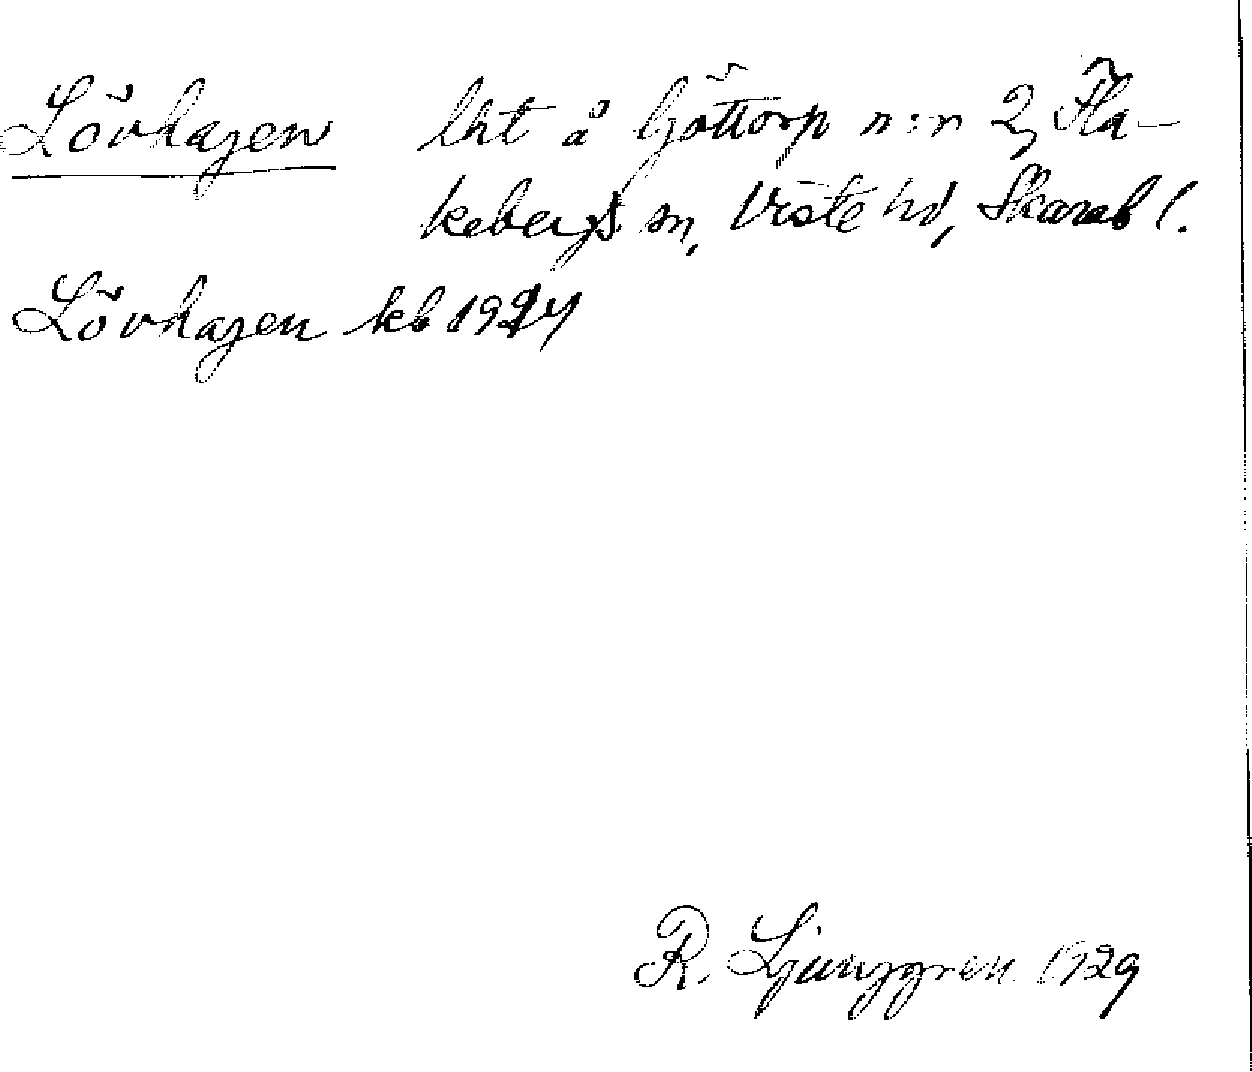 Lövhagen lht å Göttorp n:r 2, Fla-
kebergs sn, Viste hd, Skarab l.
Lövhagen kb 1924
R. Ljunggren 1929